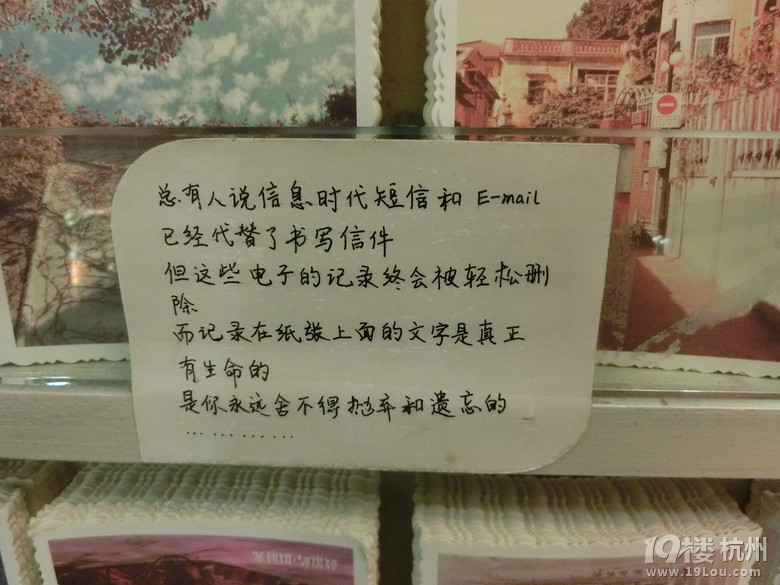 总有人说信息时代短信和 E-mail
已经代替了书写信件
但这些电子的记录终会被轻松删
除
而记录在纸张上面的文字是真正
有生命的
是你永远舍不得抛弃和遗忘的
... ... ... ...
19楼 杭州
www.19Lou.com